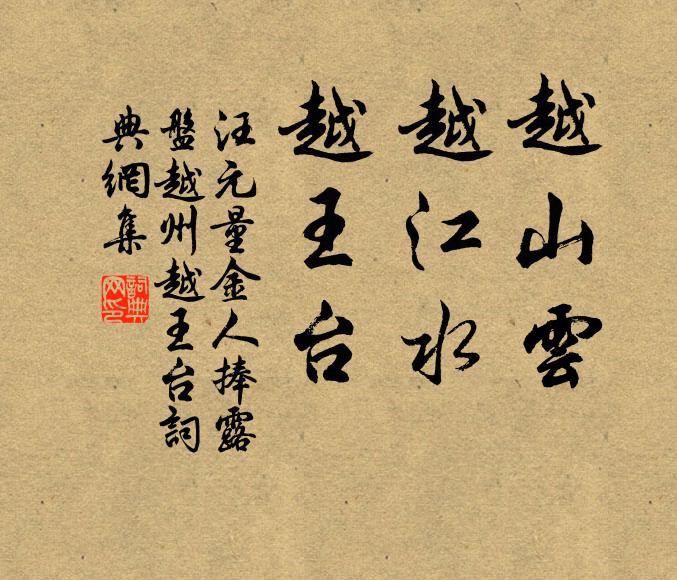 越山雲
越江水
越王台
汪元量金人捧露
盤越州越王台詞
典網集
詞典网印